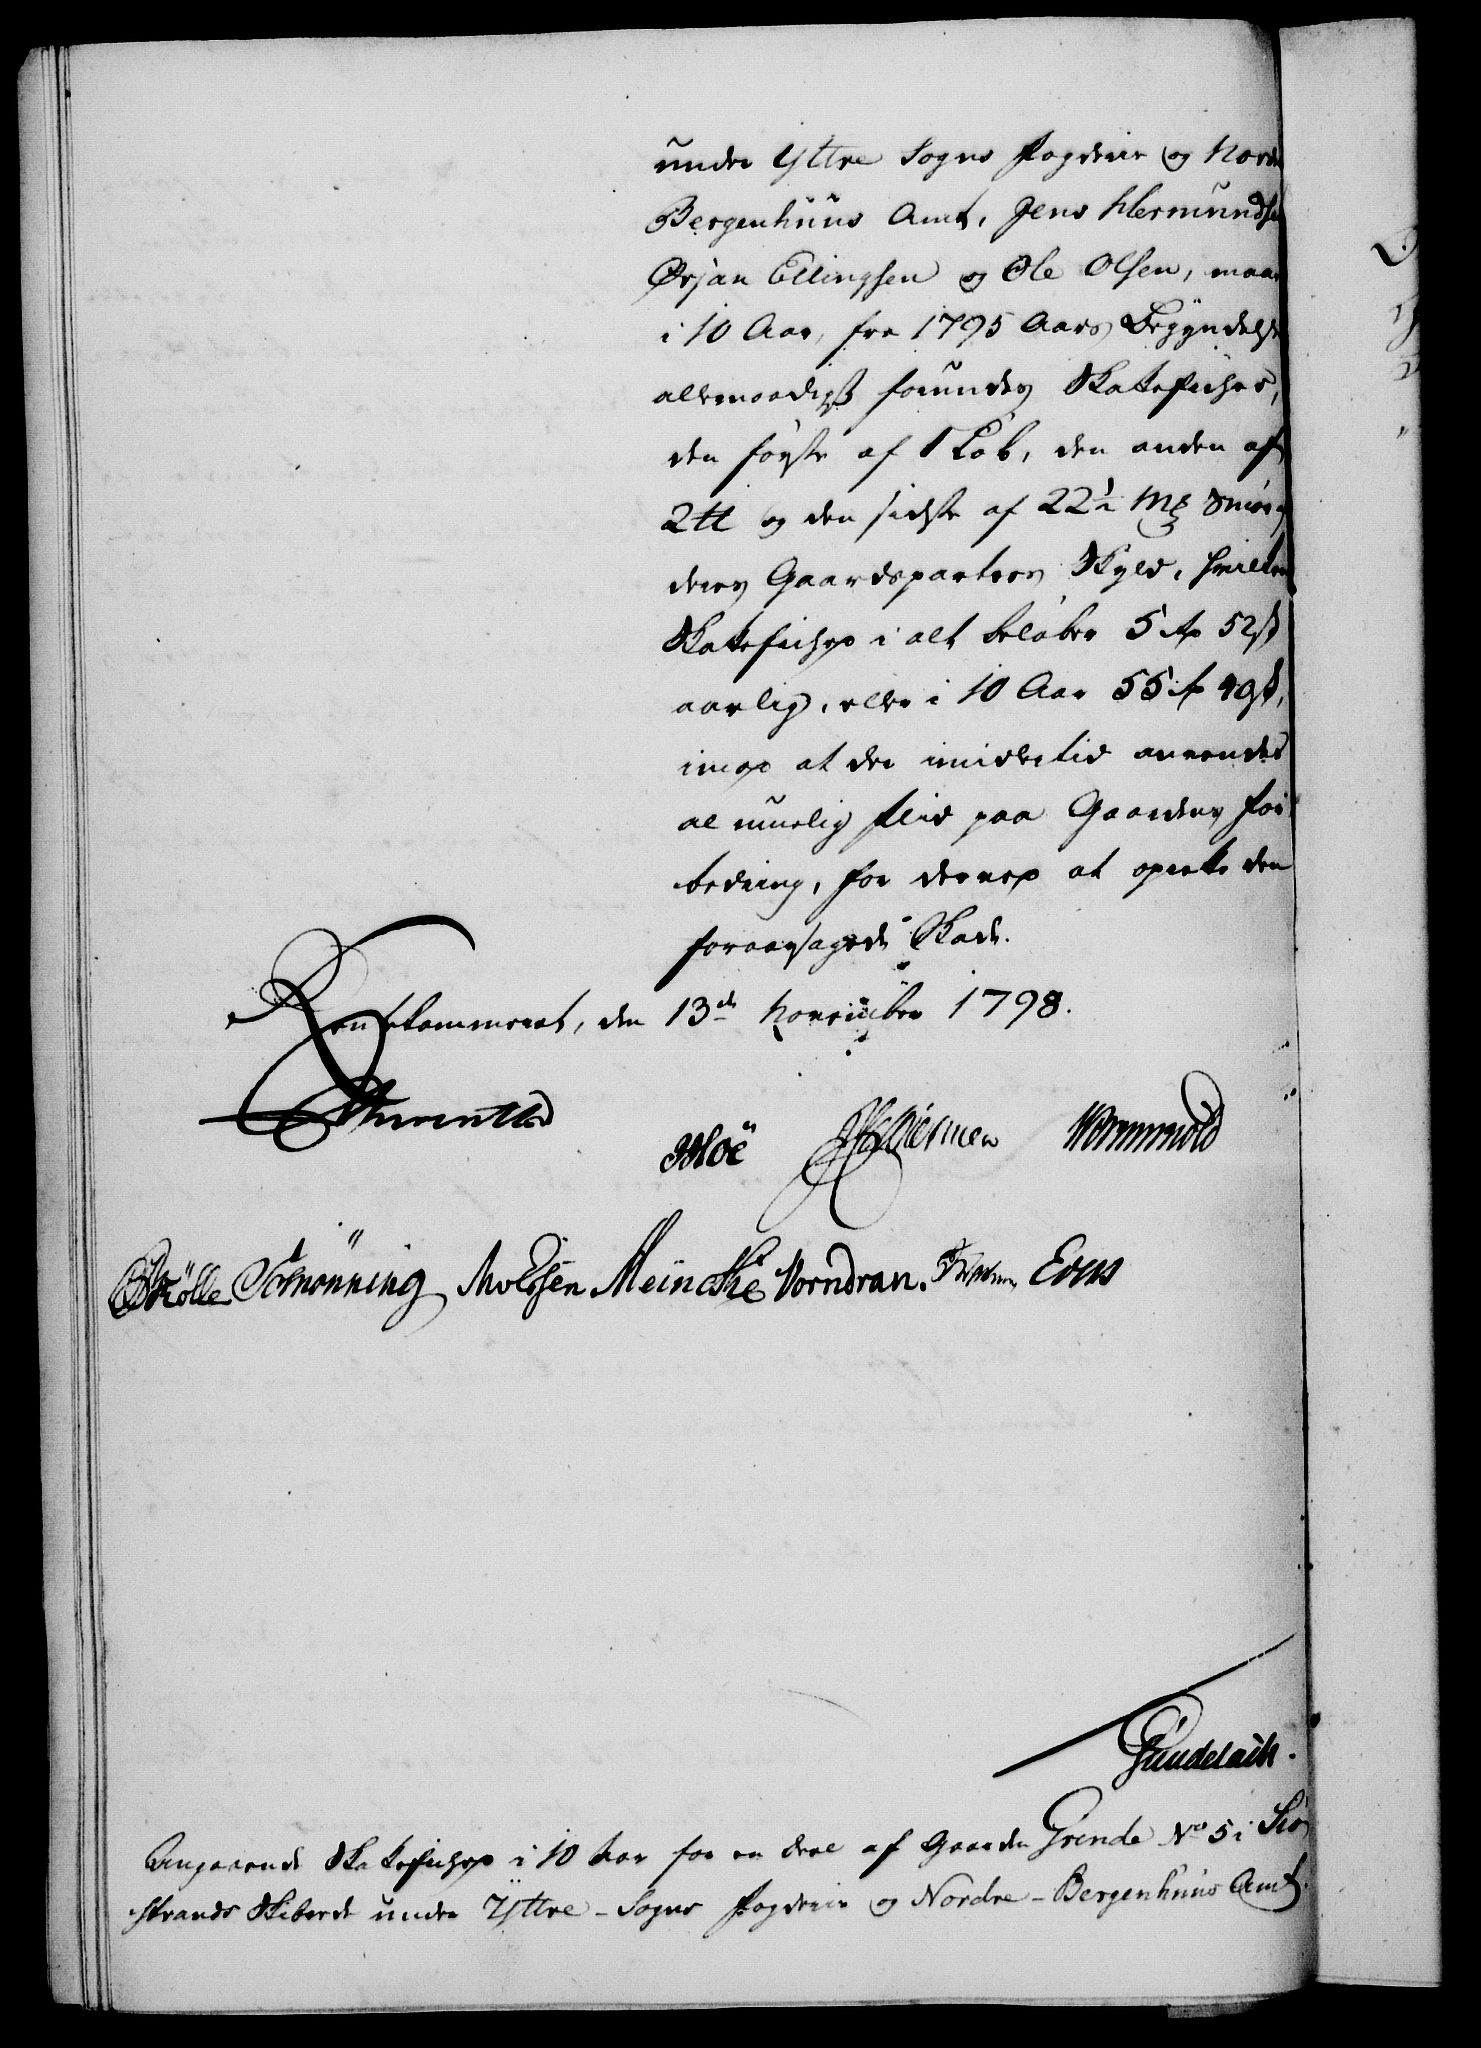 under Ÿttre Sogns Fogderie og Nordre
Bergenhuus Amt, Jens Hermundsen
Ørjan Ellingsen og Ole Olsen, maae
i 10 Aar, fra 1795 Aars Begyndelse
allernaadigst forundes Skattefrihed,
den første af 1 Løb, den anden af
2 ℔ og den sidste af 22½ Mk Smør
deres Gaardsparters Skyld, hvilken
Skattefrihed i alt beløber 5 rd 52 s
aarlig, eller i 10 Aar 55 rd 40 s,
imod at der imidlertid anvendes
al muelig Fliid paa Gaardens For
bedring, for derved at oprette den
foraarsagede Skade.
Rentekammeret, den 13de November 1798.
Moë Wormskiold
Schønning Meincke Vorndran.
Gundelach.
Angaaende Skattefrihed i 10 Aar for en Deel af Gaarden Grende No 5 i Siø
strands Skibrede under Ÿttre-Sogns Fogderie og Nordre-Bergenhuus Amt.